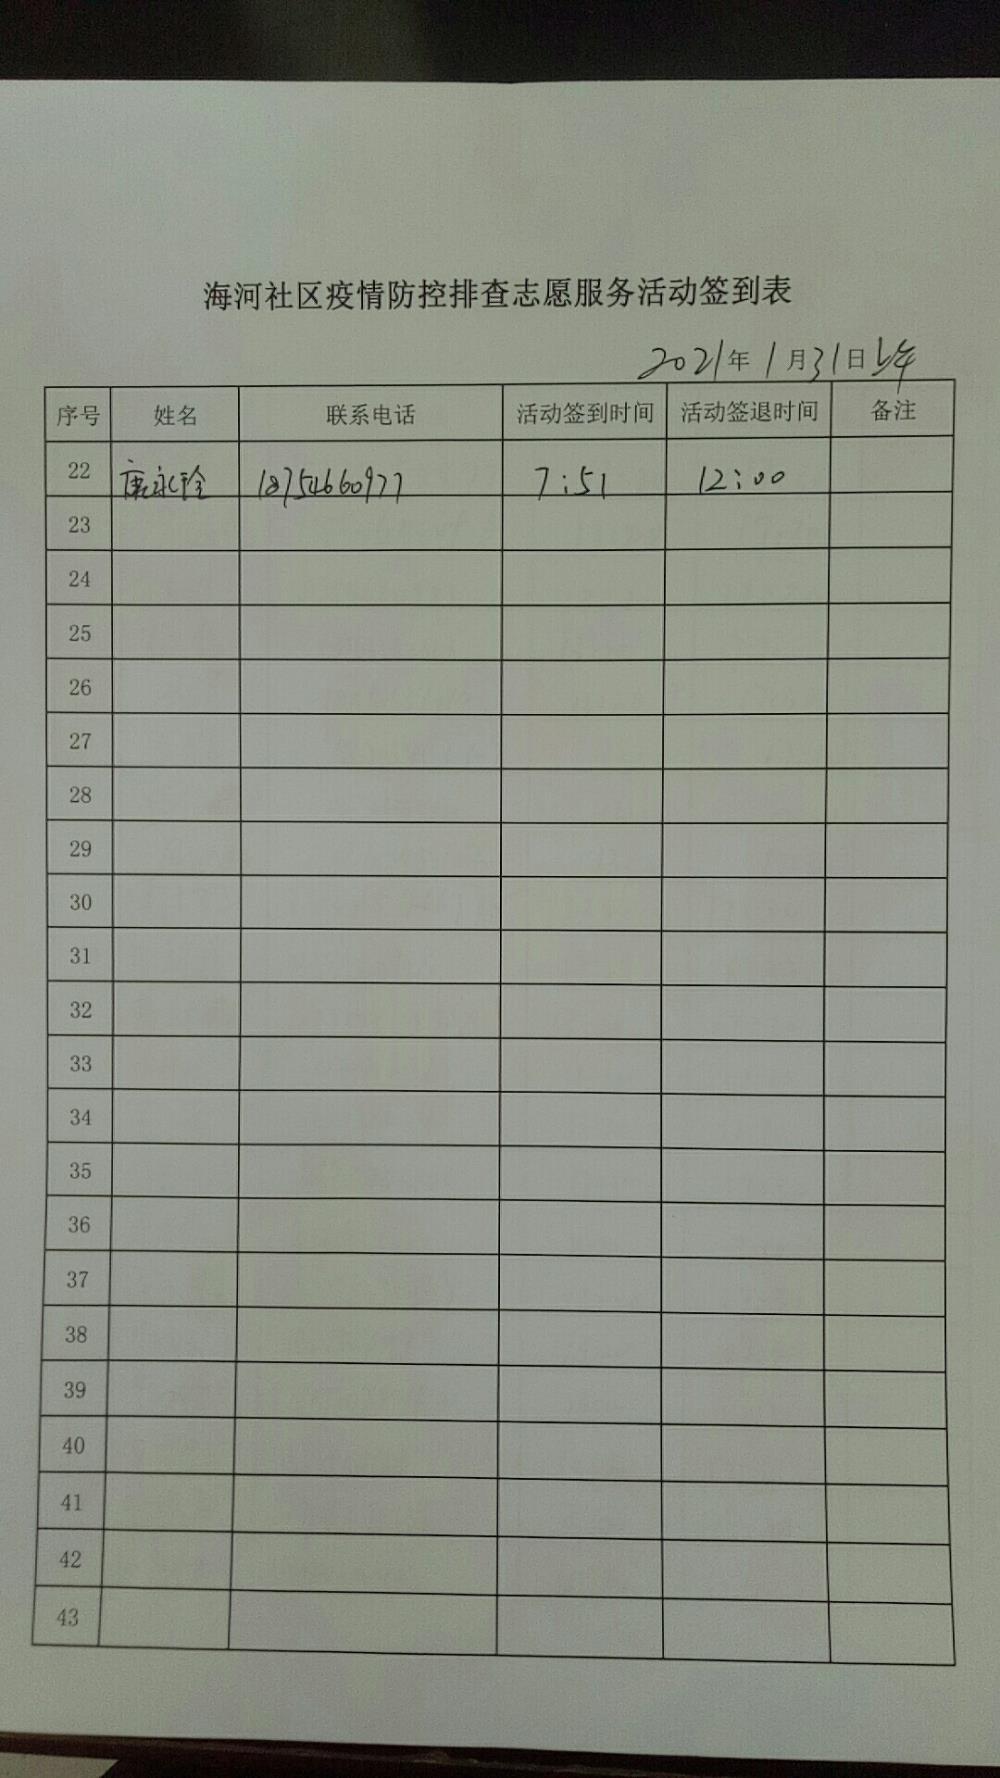 海河社区疫情防控排查志愿服务活动签到表
2021年1月31日上午
序号 姓名 联系电话 活动签到时间 活动签退时间 备注
22 18754660977 7:51 12:00
23
24
25
26
27
28
29
30
31
32
33
34
35
36
37
38
39
40
41
42
43